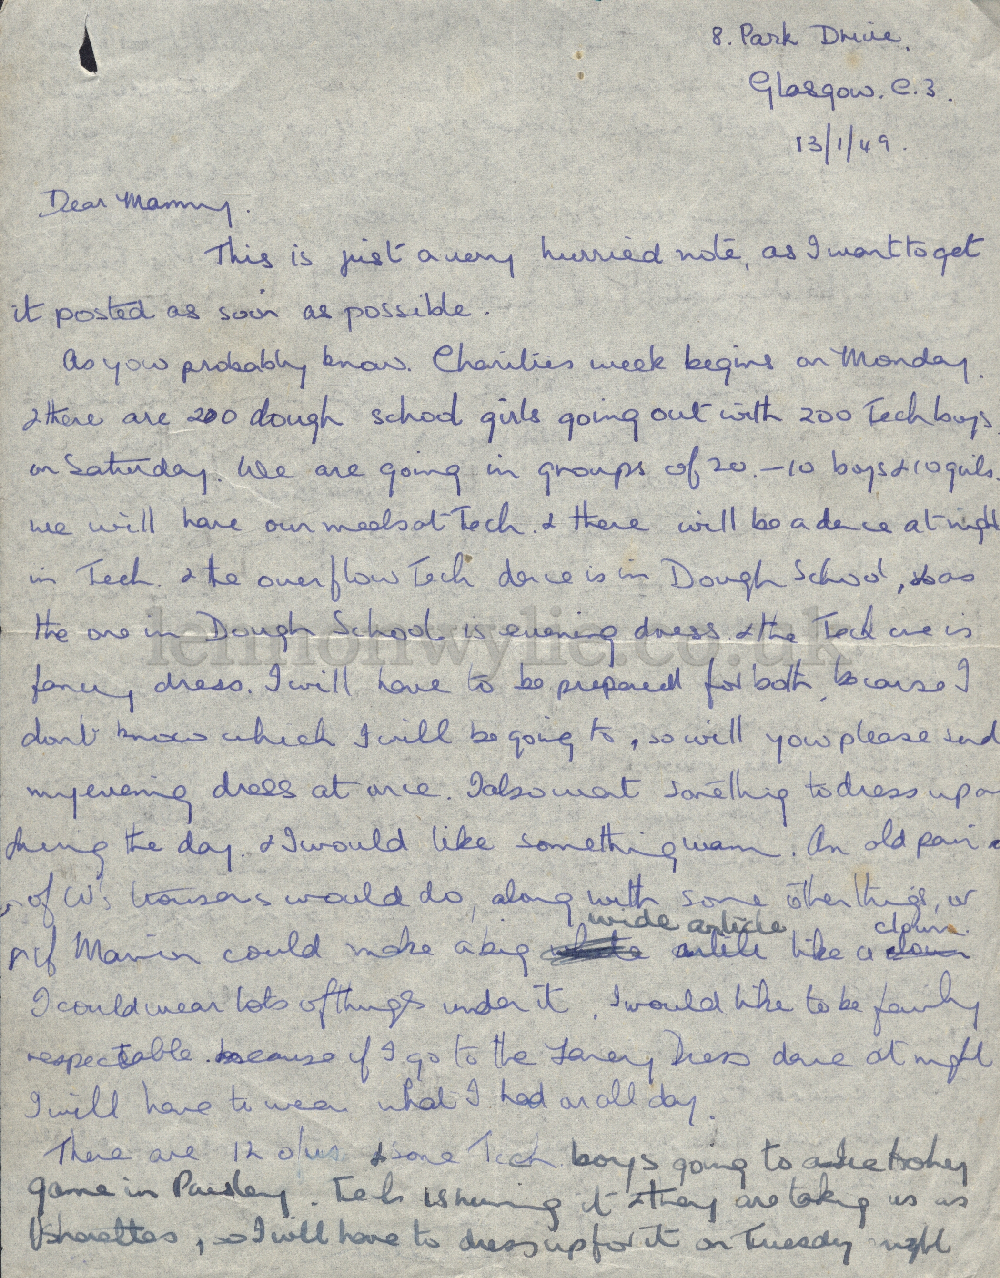 8. Park Drive,
Glasgow. C.3.
13/1/49.
Dear Mammy.
This is just a very hurried note, as I want to get
it posted as soon as possible.
As you probably know. Charities week begins on Monday.
& there are 200 dough school girls going out with 200 Tech boys.
on Saturday. We are going in groups of 20. – 10 boys & 10 girls.
we will have our meals at Tech. & there will be a dance at night
in Tech. & the overflow Tech dance is in Dough School, as
the one in Dough School is evening dress & the Tech one is
fancy dress. I will have to be prepared for both, because I
don't know which I will be going to, so will you please send
my evening dress at once. I also want something to dress up on
during the day. & I would like something warm. An old pair
of W's trousers would do, along with some other things, or
if Marion could make a big wide article like a clown.
I could wear lots of things under it. I would like to be fairly
respectable. because if I go to the Fancy Dress dance at night
I will have to wear what I had on all day.
There are 12 & some Tech. boys going to a Ice Hockey
game in Paisley. Tech is running it & they are taking us as
Usherettes, so I will have to dress up for it on Tuesday night
lennonwylie.co.uk